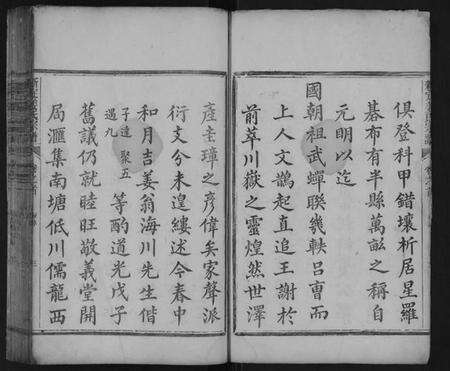 俱登科甲錯壤析居星羅
棊布有半縣萬畝之稱自
元明以迄
國朝祖武蟬聯幾軼呂曹而
上人文鵲起直追王謝於
前萃川嶽之靈煌然世澤
產圭璋之彥偉矣家聲派
衍文分未遑縷述今春中
和月吉姜翁海川先生偕
子達 聚五
遇九
等酌道光戊子
舊議仍就睦旺敬義堂開
局滙集南塘低川儒龍西